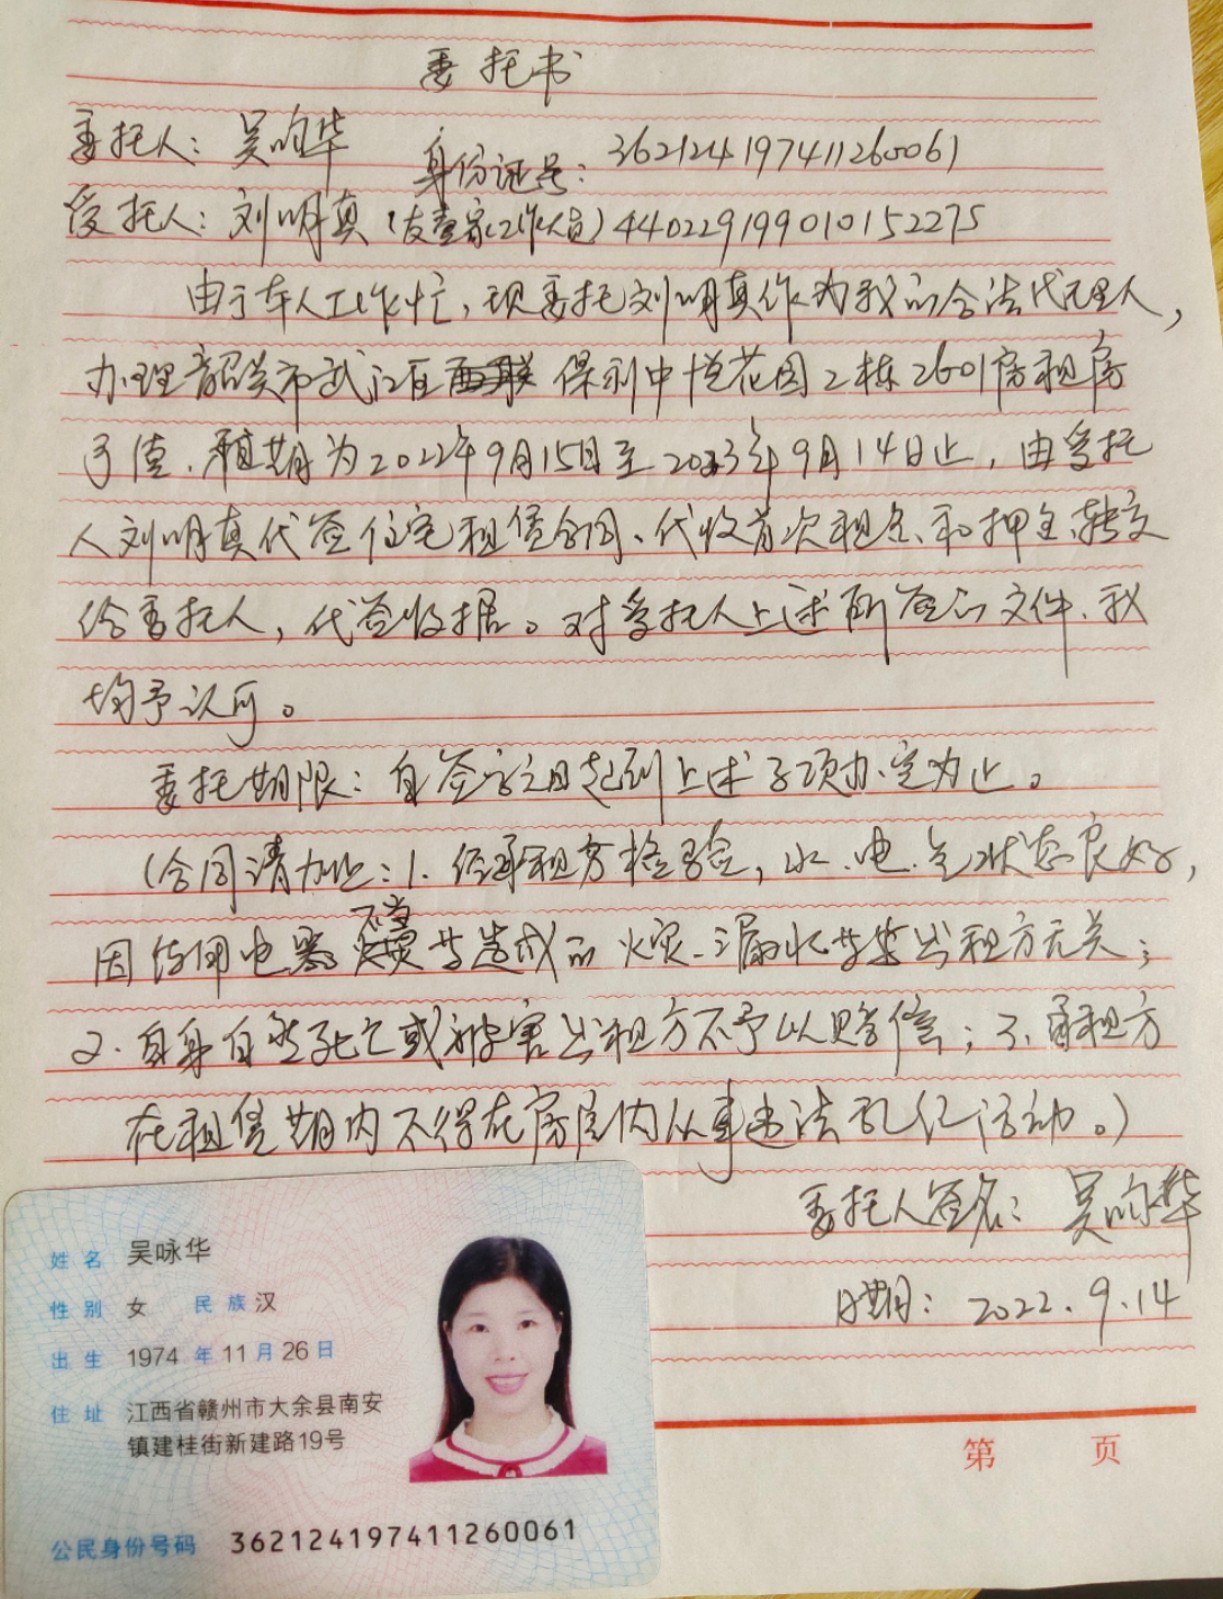 委托书
委托人：吴咏华 身份证号：362124197411260061
受托人：刘明真（友壹家工作人员）440229199010152275
由于本人工作忙，现委托刘明真作为我的合法代理人，
办理韶关市武江区西联保利中悦花园2栋2601房租房
事宜，租期为2022年9月15日至2023年9月14日止，由受托
人刘明真代签住宅租赁合同、代收首次租金、和押金、转交
给委托人，代签收据。对受托人上述所签的文件、我
均予认可。
委托期限：自签字之日起到上述事项办完为止。
（合同请加上：1. 经承租方检验，水、电、气状态良好，
因使用电器不当等造成的火灾、漏水等与出租方无关；
2. 自身自然死亡或被害出租方不予以赔偿；3、承租方
在租赁期内不得在房屋内从事违法乱纪活动。）
委托人签名：吴咏华
日期：2022.9.14
姓名 吴咏华
性别 女 民族 汉
出生 1974年11月26日
住址 江西省赣州市大余县南安
镇建桂街新建路19号
公民身份号码 362124197411260061
第 页